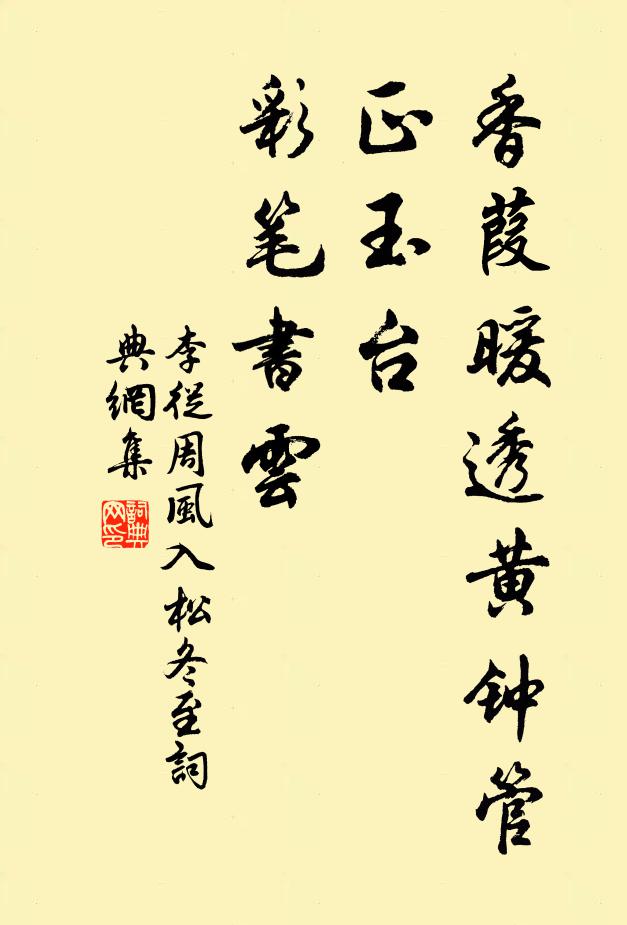 香葭暖透黄钟管
正玉台
彩笔書雲
李從周風入松冬至詞
典網集
詞典
网印